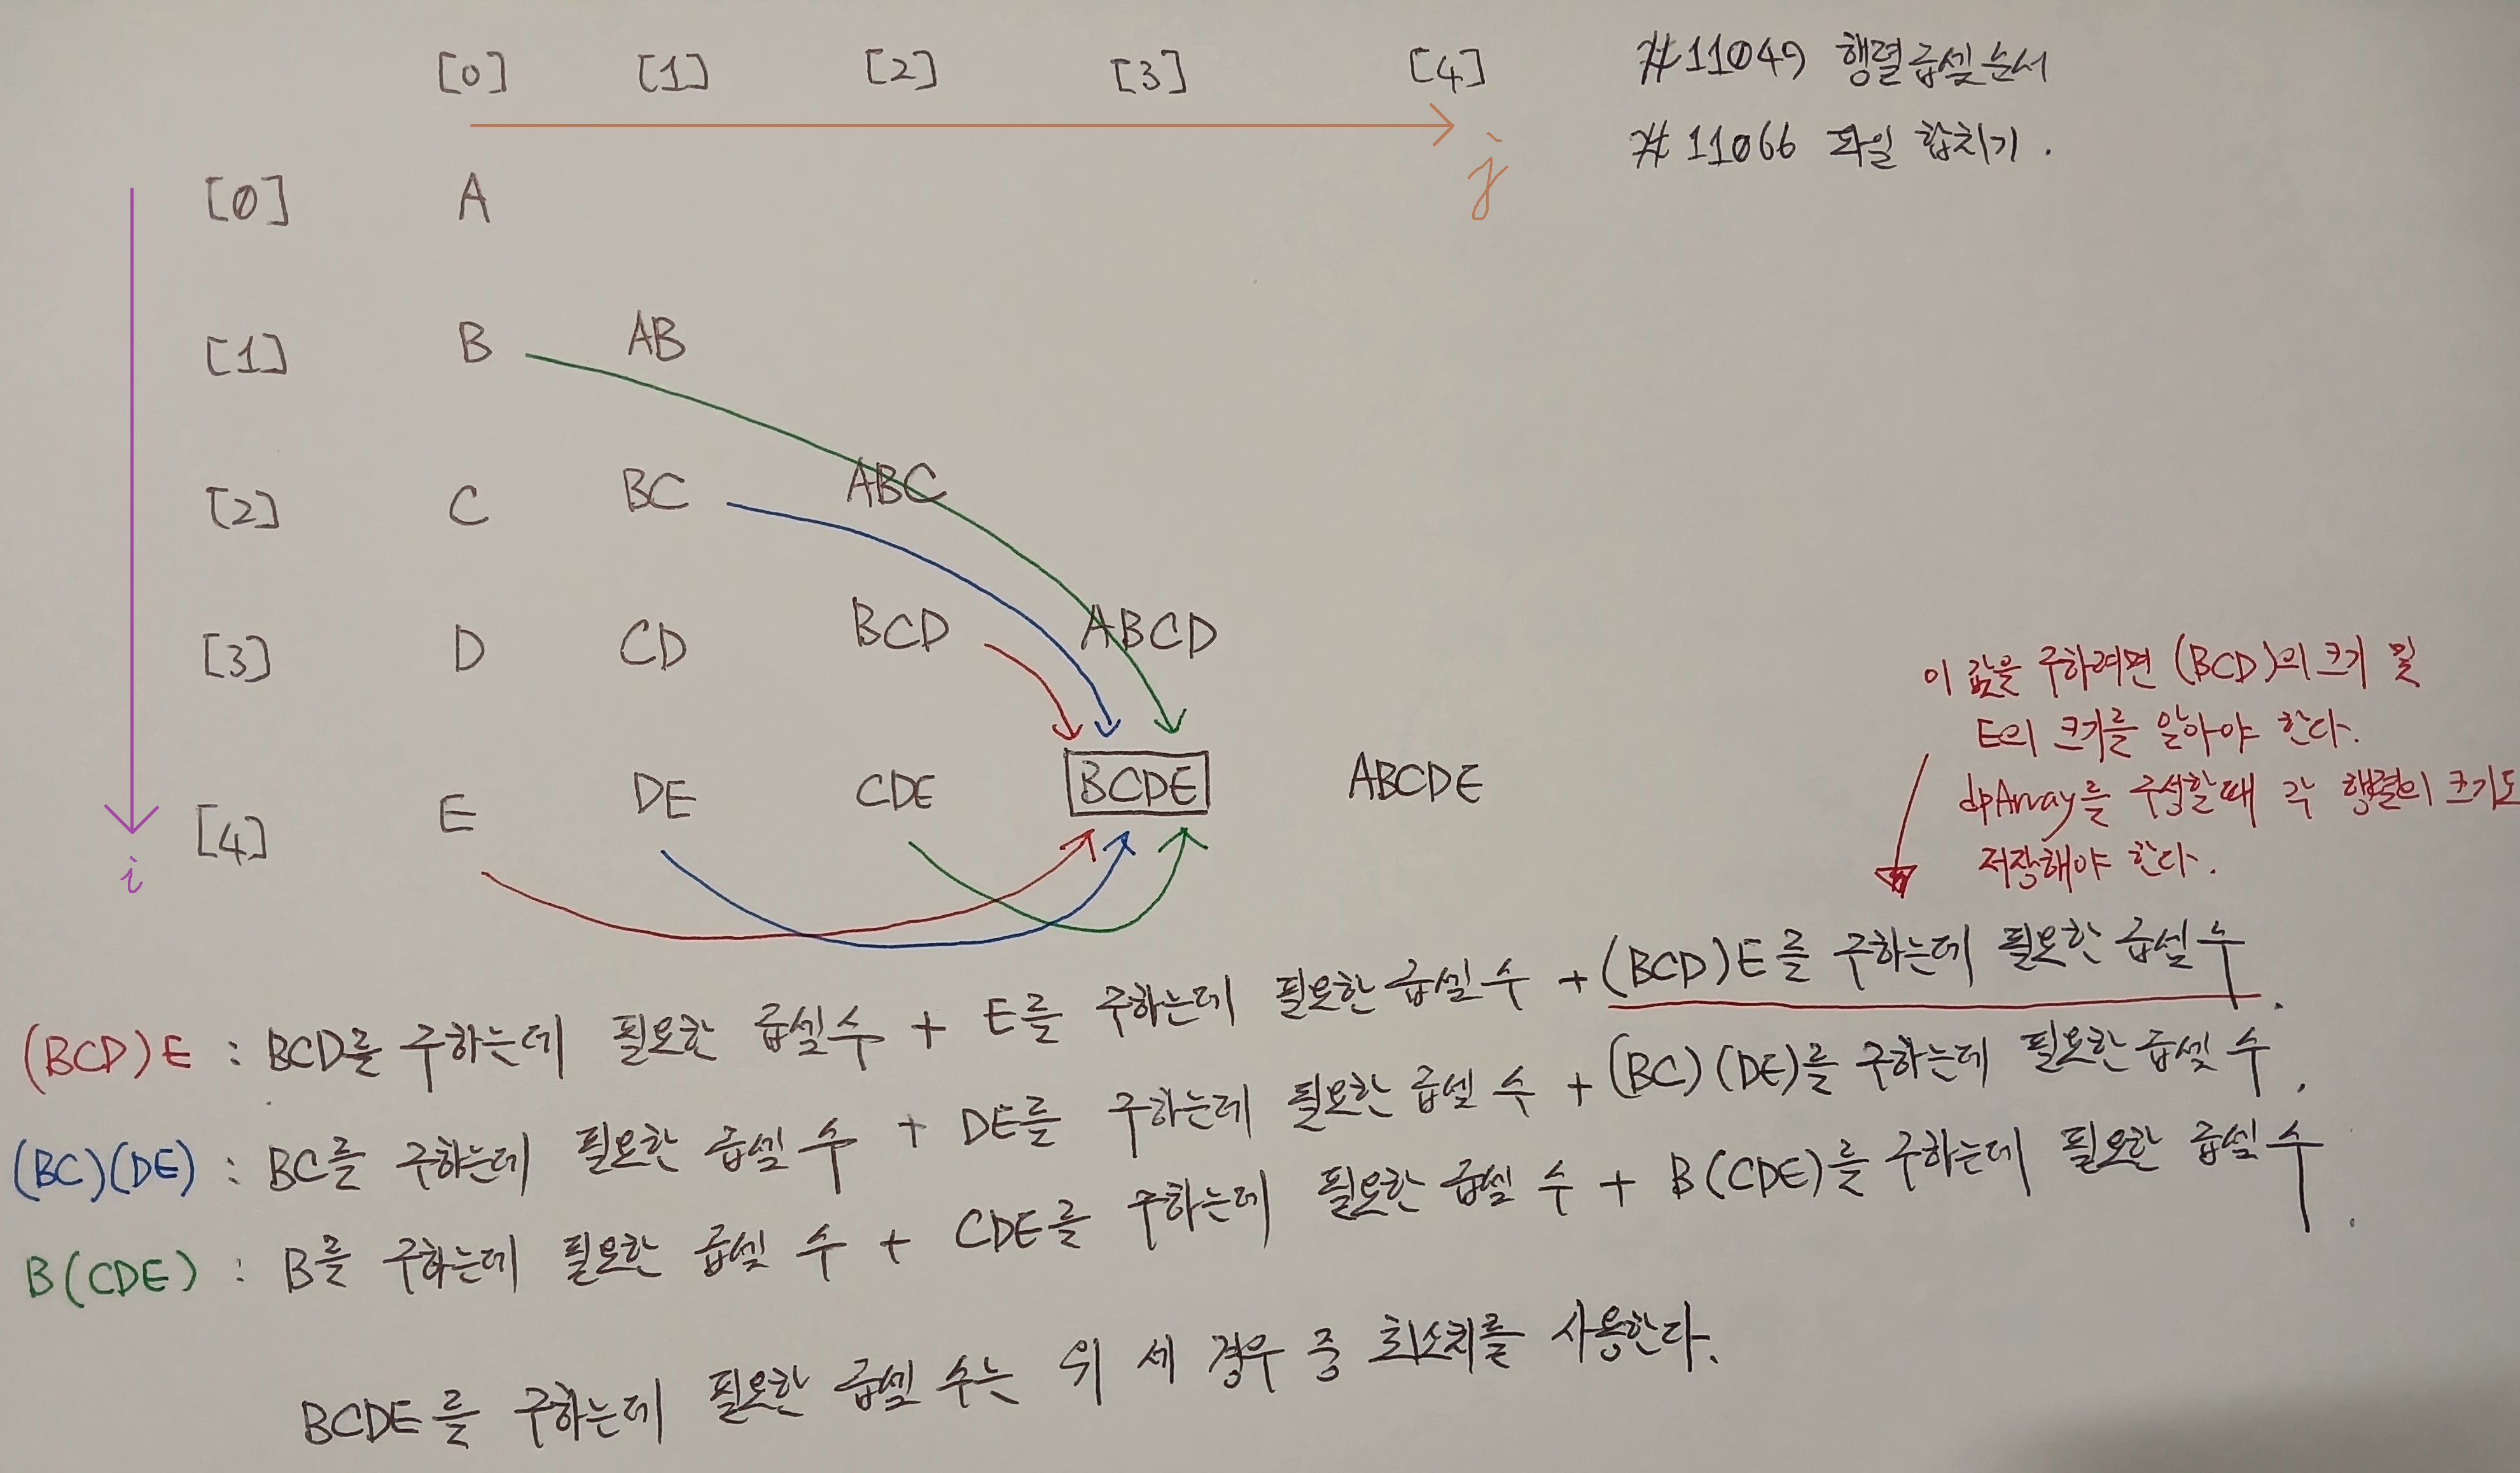 [0] [1] [2] [3] [4]
#11049 행렬 곱셈 순서
#11066 파일 합치기.
j
[0] A
[1] B AB
[2] C BC ABC
[3] D CD BCD ABCD
[4] E DE CDE BCDE ABCDE
i
이 값을 구하려면 (BCD)의 크기 및
E의 크기를 알아야 한다.
dpArray를 구성할때 각 행렬의 크기도
저장해야 한다.
(BCD)E : BCD를 구하는데 필요한 곱셈 수 + E를 구하는데 필요한 곱셈 수 + (BCD)E를 구하는데 필요한 곱셈 수.
(BC)(DE) : BC를 구하는데 필요한 곱셈 수 + DE를 구하는데 필요한 곱셈 수 + (BC)(DE)를 구하는데 필요한 곱셈 수.
B(CDE) : B를 구하는데 필요한 곱셈 수 + CDE를 구하는데 필요한 곱셈 수 + B(CDE)를 구하는데 필요한 곱셈 수.
BCDE를 구하는데 필요한 곱셈 수는 위 세 경우 중 최소치를 사용한다.